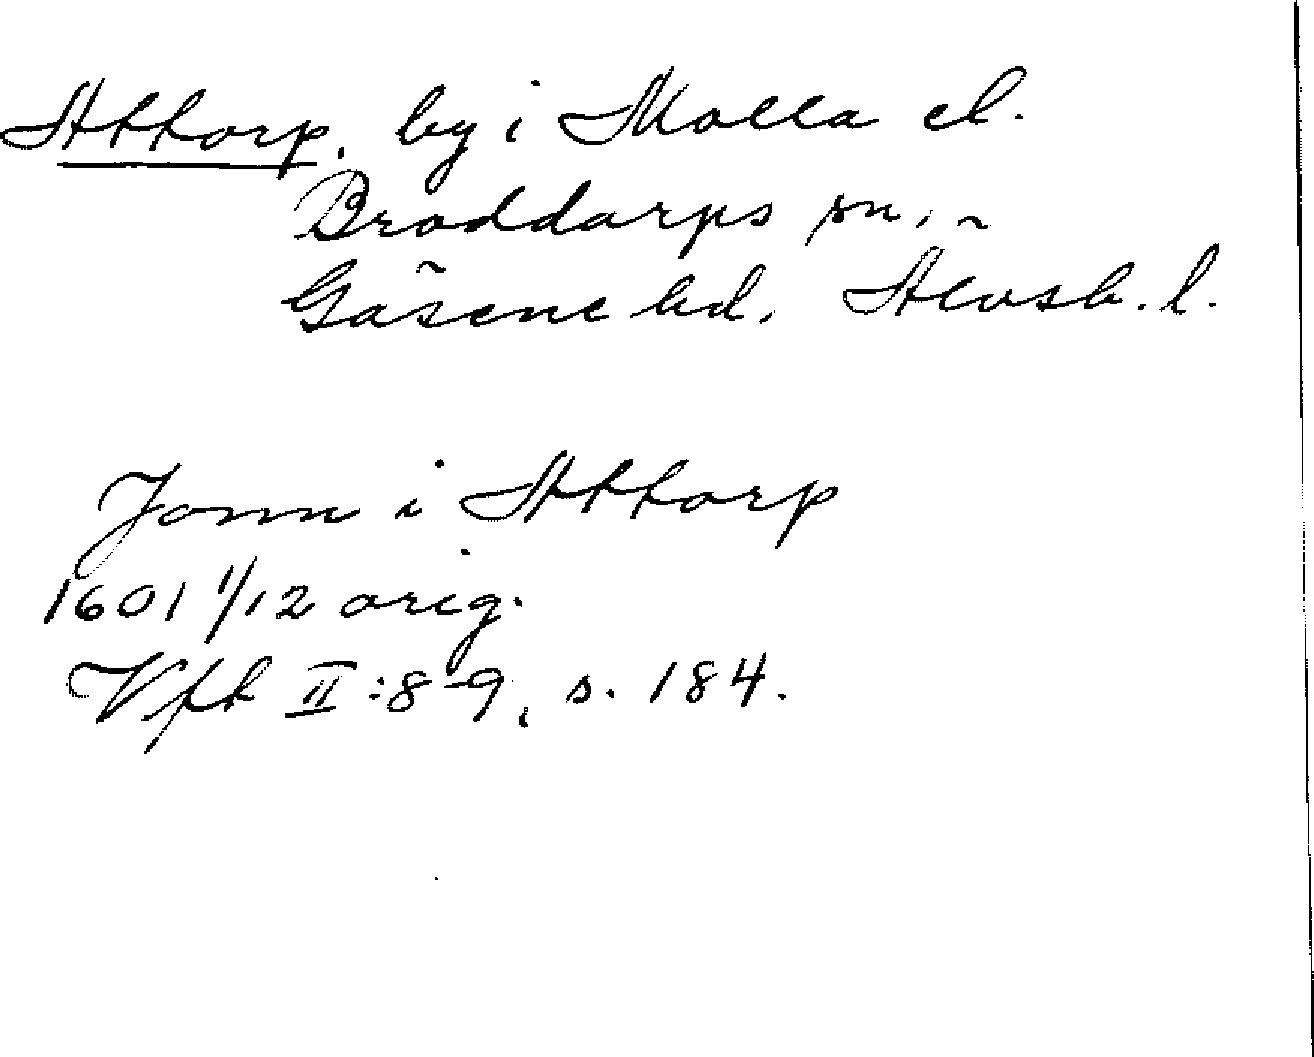 Attorp, by i Molla el.
Broddarps sn.
Gäsene hd, Älvsb. l.
Jonn i Attorp
1601 1/12 orig.
Vft II:8-9, s. 184.